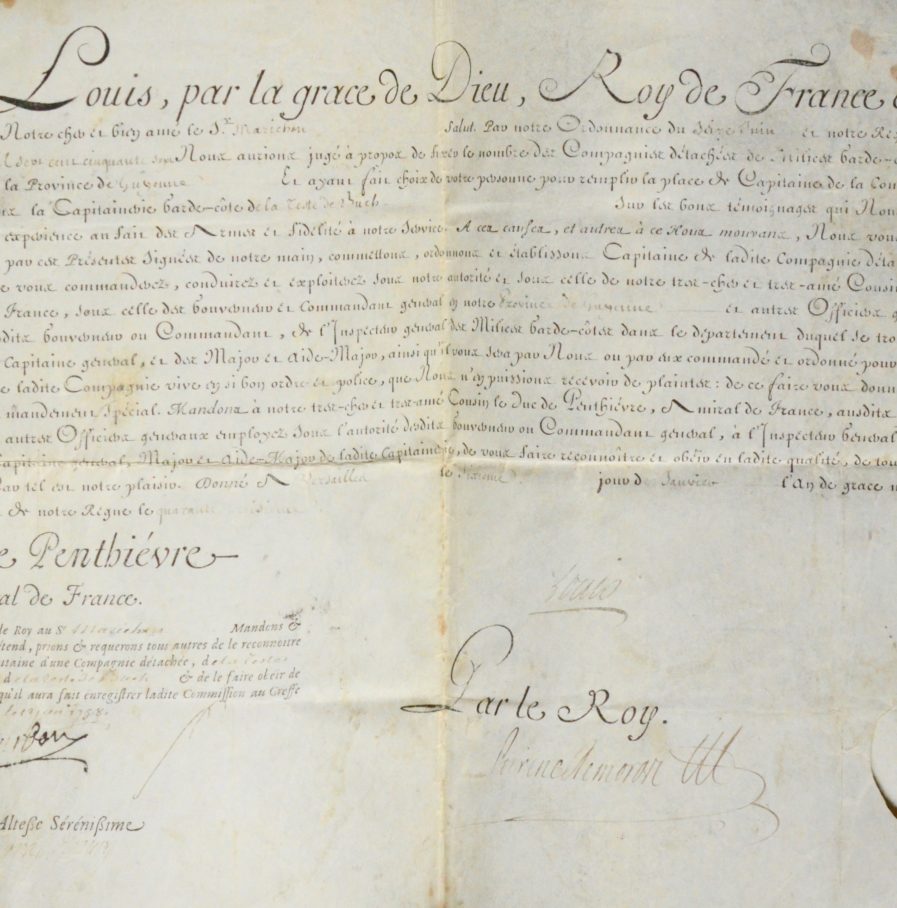 Louis, par la grace de Dieu, Roy de France
Notre cher et bien amé le S.r Marichon salut. Par notre Ordonnance du Seize Juin et notre Re
Sept cent cinquante six Nous aurions jugé à propos de fixer le nombre des Compagnies détachées de Milices Garde-c
la Province de Guyenne Et ayant fait choix de votre personne pour remplir la place de Capitaine de la Com
la Capitainerie Garde-côte de la Teste de Buch Sur les bons témoignages qui Nou
experience au fait des Armes et fidelité à notre Service. A ces causes, et autres à ce Nous mouvans, Nous vou
par ces Présentes Signées de notre main, commettons, ordonnons et établissons Capitaine de ladite Compagnie déta
e vous commanderez, conduirez et exploiterez sous notre autorité et sous celle de notre tres-cher et tres-amé Cousin
France, sous celle des Gouverneur et Commandant general en notre Province de Guyenne et autres Officiers g
sdits Gouverneur ou Commandant, de l'Inspecteur general des Milices Garde-côtes dans le departement duquel se tro
Capitaine general, et des Major et Aide-Major, ainsi qu'il vous sera par Nous ou par eux commandé et ordonné pour
e ladite Compagnie vive en si bon ordre et police, que Nous n'en puissions recevoir de plaintes: de ce faire vous donn
mandement spécial. Mandons à notre tres-cher et tres-amé Cousin le Duc de Penthiévre, Amiral de France, ausdits
autres Officiers generaux employez sous l'autorité desdits Gouverneur ou Commandant general, à l'Inspecteur General
Capitaine general, Major et Aide-Major de ladite Capitainerie, de vous faire reconnoître et obéir en ladite qualité, de tou
Car tel est notre plaisir. Donné A Versailles le jour de Janvier l'An de grace m
de notre Régne le quarante
e Penthiévre
al de France.
le Roy au S.r Marichon Mandons &
étend, prions & requerons tous autres de le reconnoitre
itaine d'une Compagnie détachée, de la Teste
de la Teste de Buch & de le faire obeir de
qu'il aura fait enregistrer ladite Commission au Greffe
1758
Louis
Par le Roy.
Altesse Sérénissime